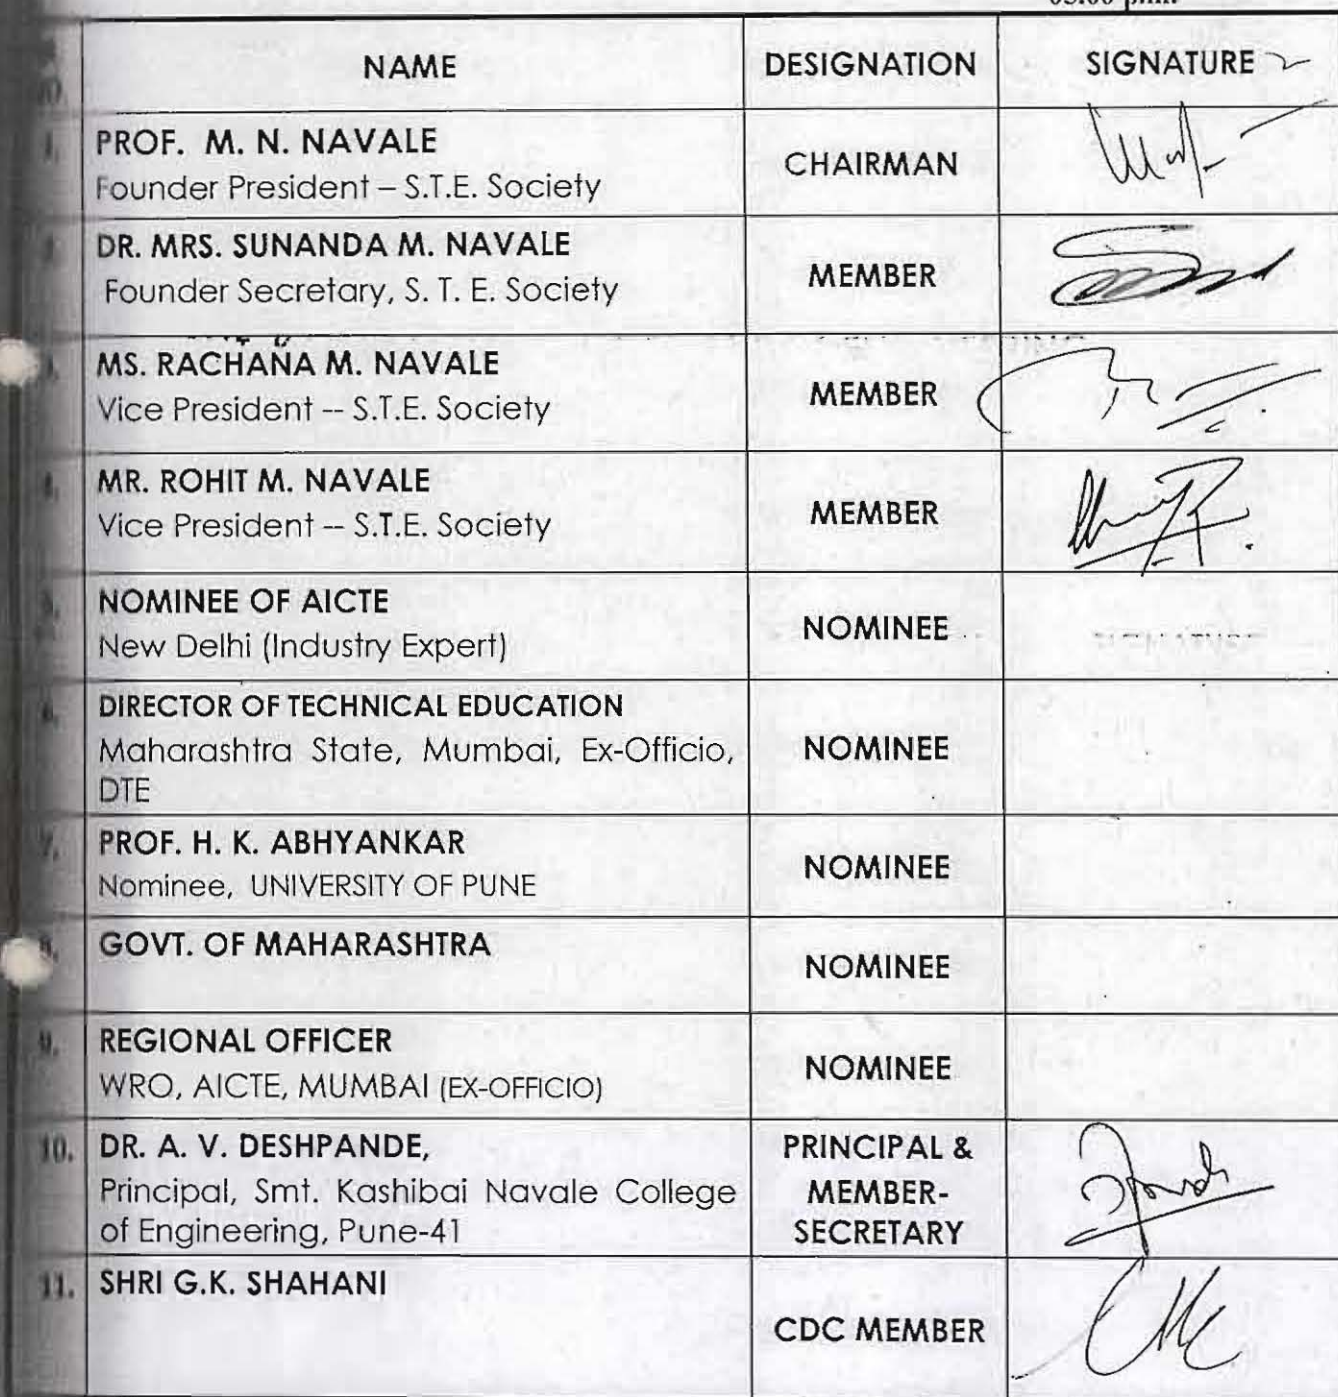 NAME DESIGNATION SIGNATURE
PROF. M. N. NAVALE
Founder President – S.T.E. Society
CHAIRMAN
DR. MRS. SUNANDA M. NAVALE
Founder Secretary, S. T. E. Society
MEMBER
MS. RACHANA M. NAVALE
Vice President -- S.T.E. Society
MEMBER
MR. ROHIT M. NAVALE
Vice President -- S.T.E. Society
MEMBER
NOMINEE OF AICTE
New Delhi (Industry Expert)
NOMINEE
DIRECTOR OF TECHNICAL EDUCATION
Maharashtra State, Mumbai, Ex-Officio,
DTE
NOMINEE
7.
PROF. H. K. ABHYANKAR
Nominee, UNIVERSITY OF PUNE
NOMINEE
8.
GOVT. OF MAHARASHTRA
NOMINEE
9.
REGIONAL OFFICER
WRO, AICTE, MUMBAI (EX-OFFICIO)
NOMINEE
10.
DR. A. V. DESHPANDE,
Principal, Smt. Kashibai Navale College
of Engineering, Pune-41
PRINCIPAL &
MEMBER-
SECRETARY
11.
SHRI G.K. SHAHANI
CDC MEMBER